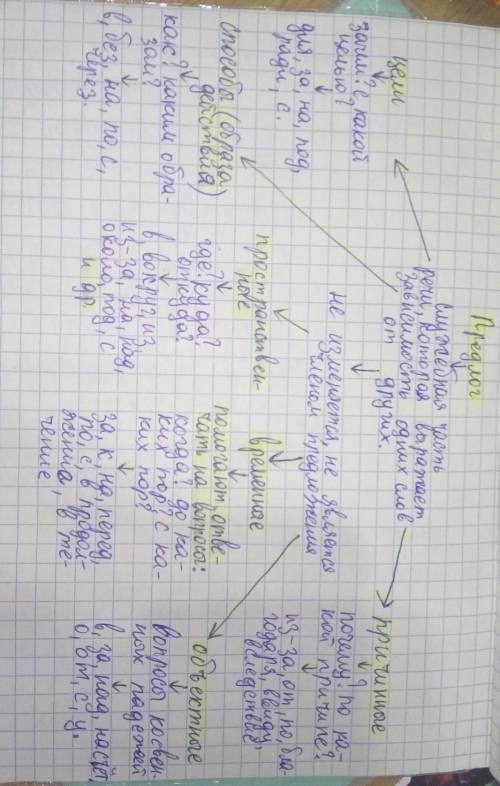 Предлог
служебная часть
речи, которая выражает
зависимость одних слов
от других.
не изменяется, не является
членом предложения
цели
зачем? с какой
целью?
для, за, на, под,
ради, с.
способы (образа
действия)
как? каким обра-
зом?
в, без, на, по, с,
через.
пространствен-
ные
где? куда?
откуда?
в, вокруг, из
из-за, на, над,
около, под, с
и др.
временные
помогают отве-
чать на вопросы:
когда? до ка-
ких пор? с ка-
ких пор?
за, к, на, перед,
по, с, в продол-
жении, в те-
чение
причинные
почему? по ка-
кой причине?
из-за, от, по бла-
годаря, ввиду,
вследствие
объектные
вопросы косвен-
ных падежей
в, за, над, насчёт,
о, от, с, у.